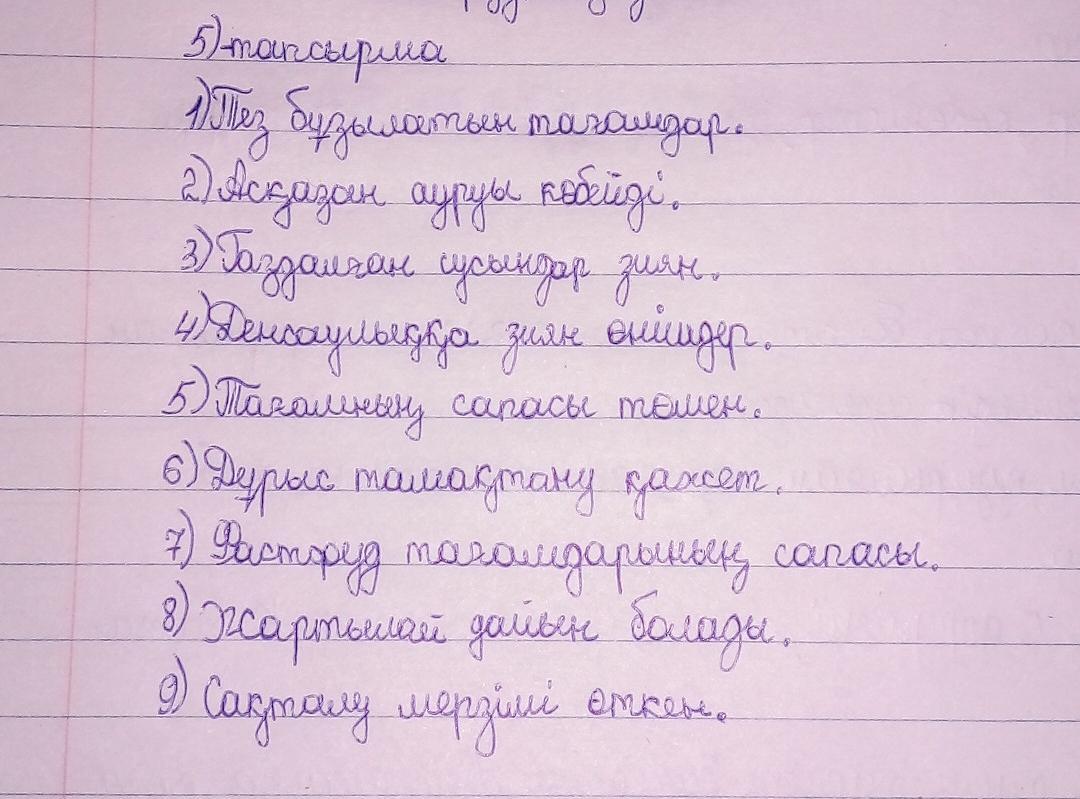 5)-тапсырма
1)Тез бұзылатын тағамдар.
2)Асқазан ауруы көбейді.
3)Газдалған сусындар зиян.
4)Денсаулыққа зиян өнімдер.
5)Тағамның сапасы төмен.
6)Дұрыс тамақтану қажет.
7) Фастфуд тағамдарының сапасы.
8) Жартылай дайын болады.
9) Сақталу мерзімі өткен.